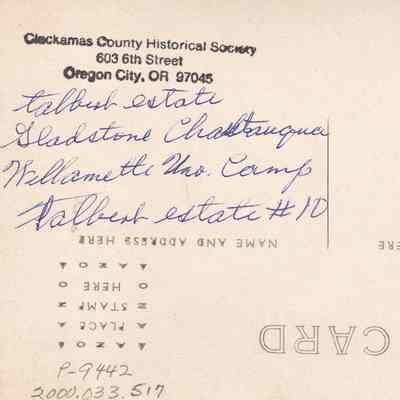 Clackamas County Historical Society
603 6th Street
Oregon City, OR 97045
Talbert estate
Gladstone Chautauqua
Willamette Uno. Camp
Talbert estate #10
NAME AND ADDRESS HERE
HERE
AZO
PLACE
STAMP
HERE
AZO
CARD
P-9442
2000.033.517